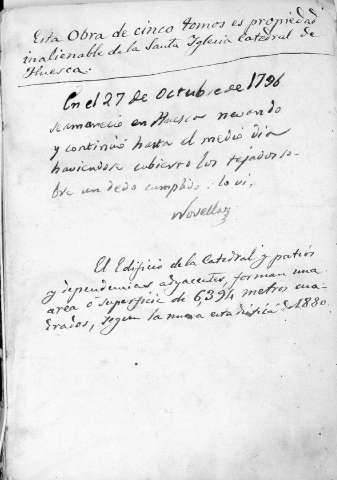 Esta Obra de cinco tomos es propiedad
inalienable de la Santa Iglesia Catedral de
Huesca.
En el 27 de Octubre de 1796
se amaneció en Huesca nevando
y continuó hasta el medio dia
haviendose cubierto los tejados so-
bre un dedo cumplido: lo vi.
Novellas
El Edificio de la Catedral y patios
y dependencias adyacentes, forman una
area ó superficie de 6,394 metros cua-
drados, segun la nueva estadística de 1880.